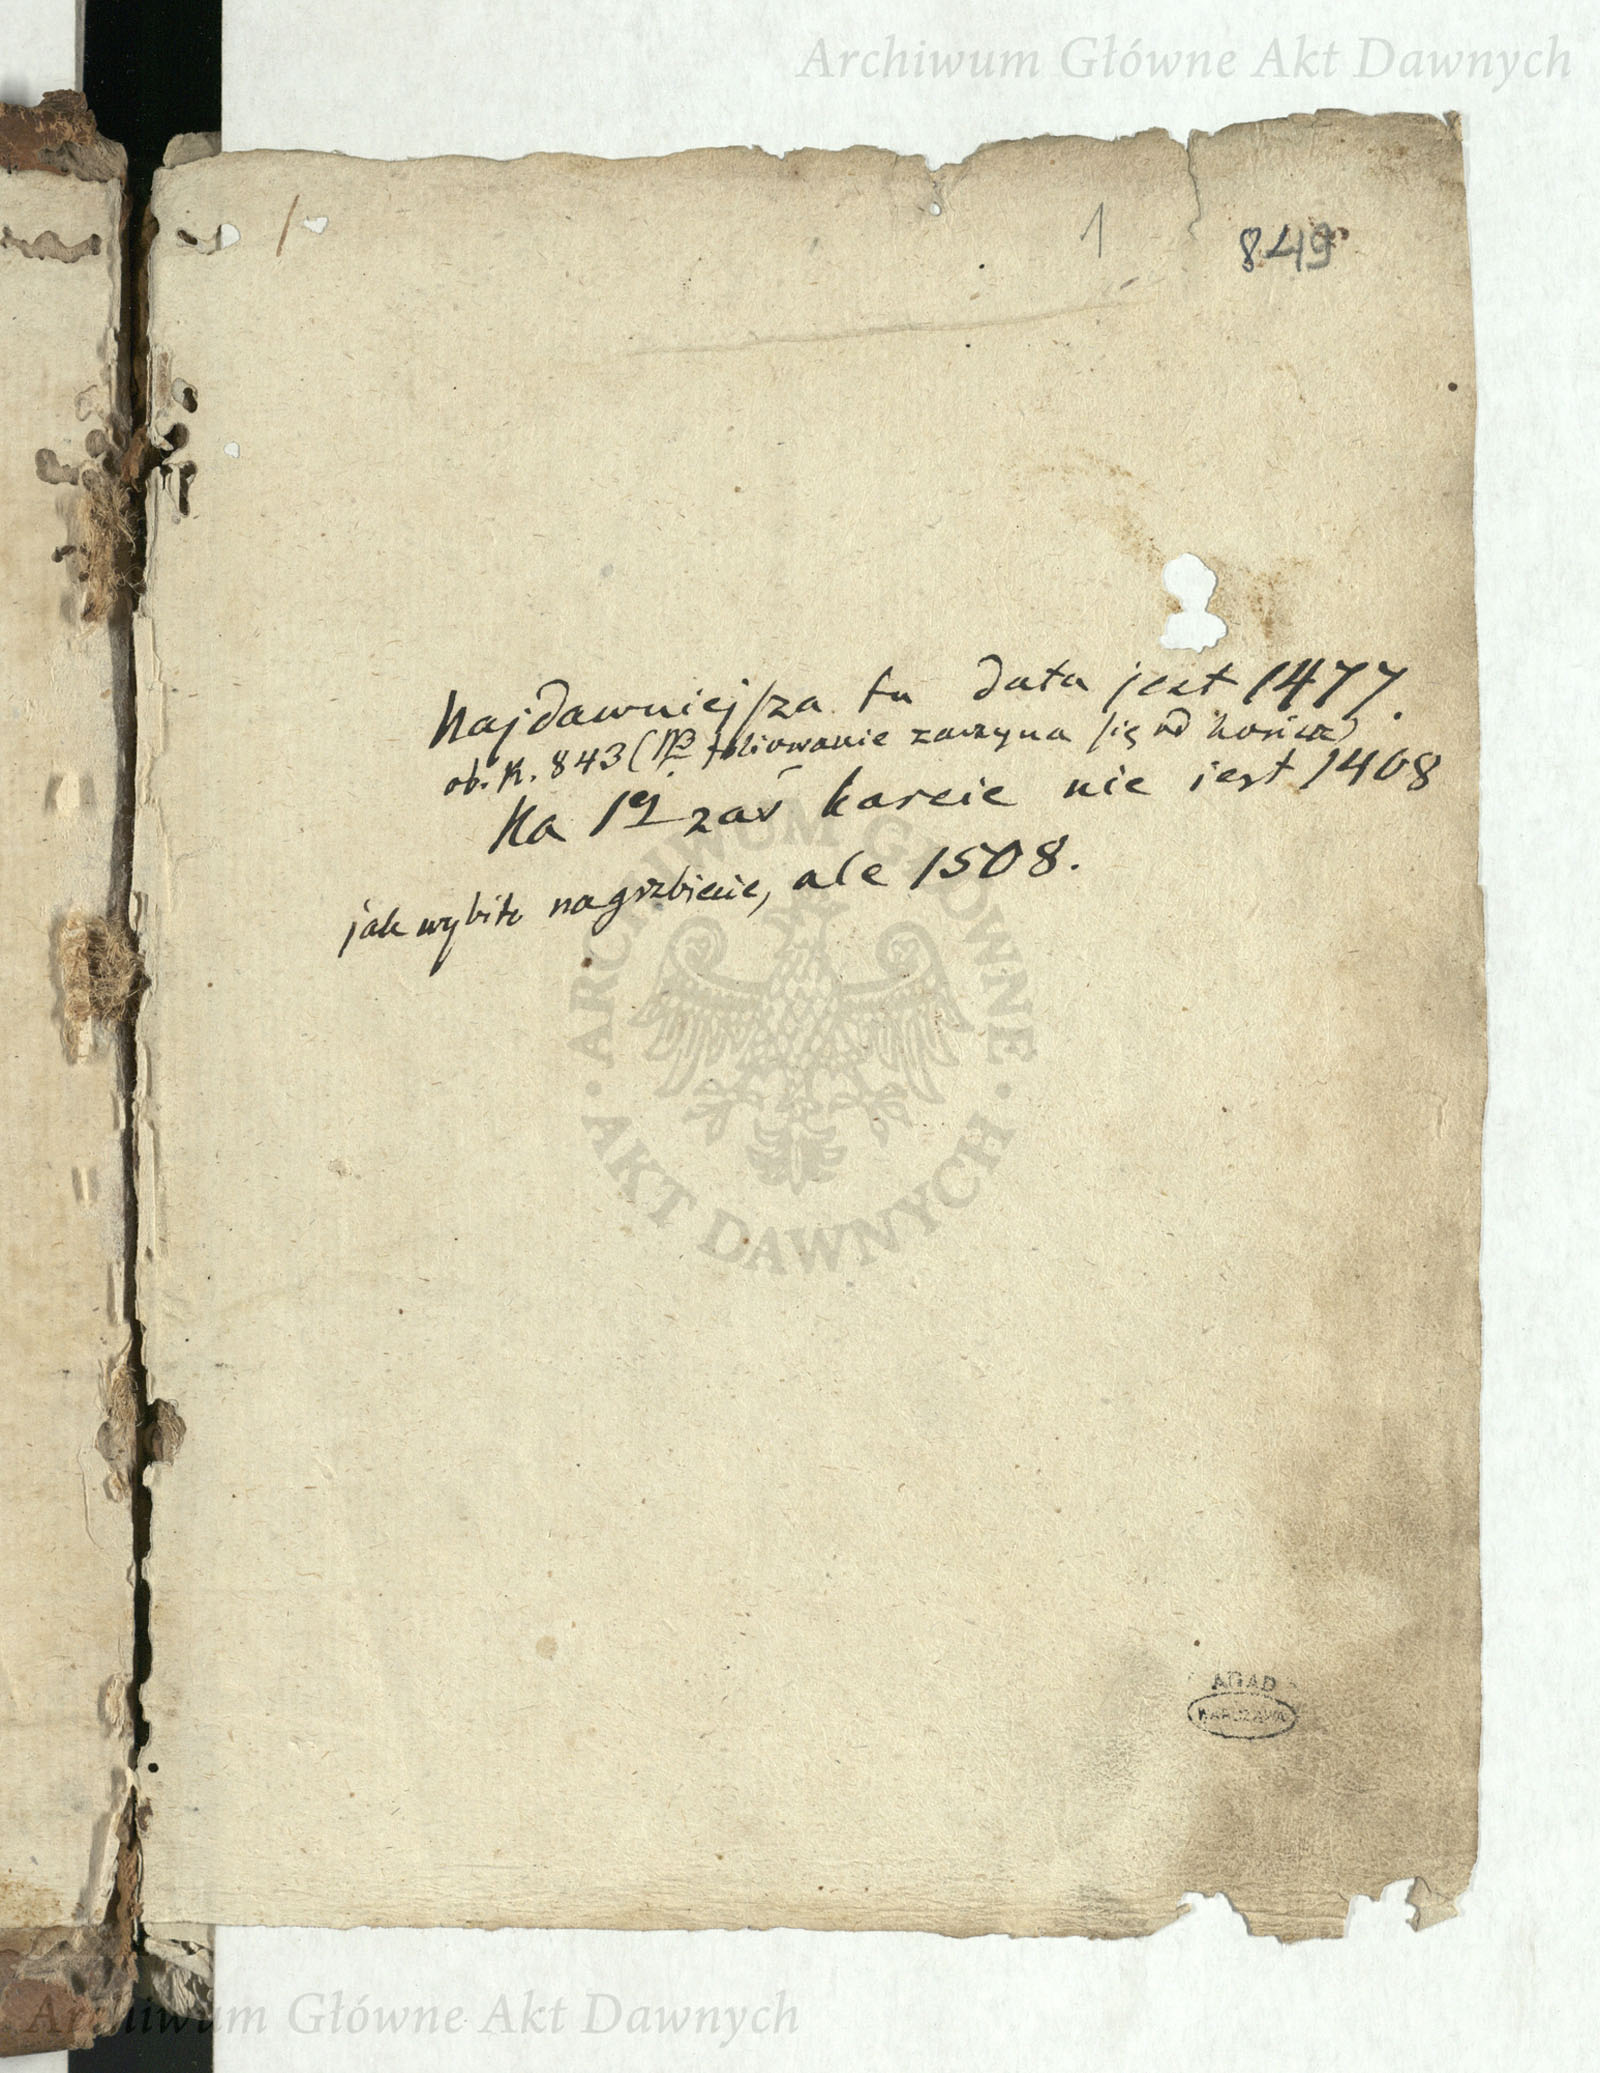 Archiwum Główne Akt Dawnych
1
849
Najdawniejsza tu data jest 1477.
ob. K. 843 (NB foliowanie zaczyna się od końca)
Na 1ej zaś karcie nie jest 1408
jak wybito na grzbiecie, ale 1508.
ARCHIWUM GŁÓWNE
· AKT DAWNYCH ·
AGAD
WARSZAWA
Archiwum Główne Akt Dawnych